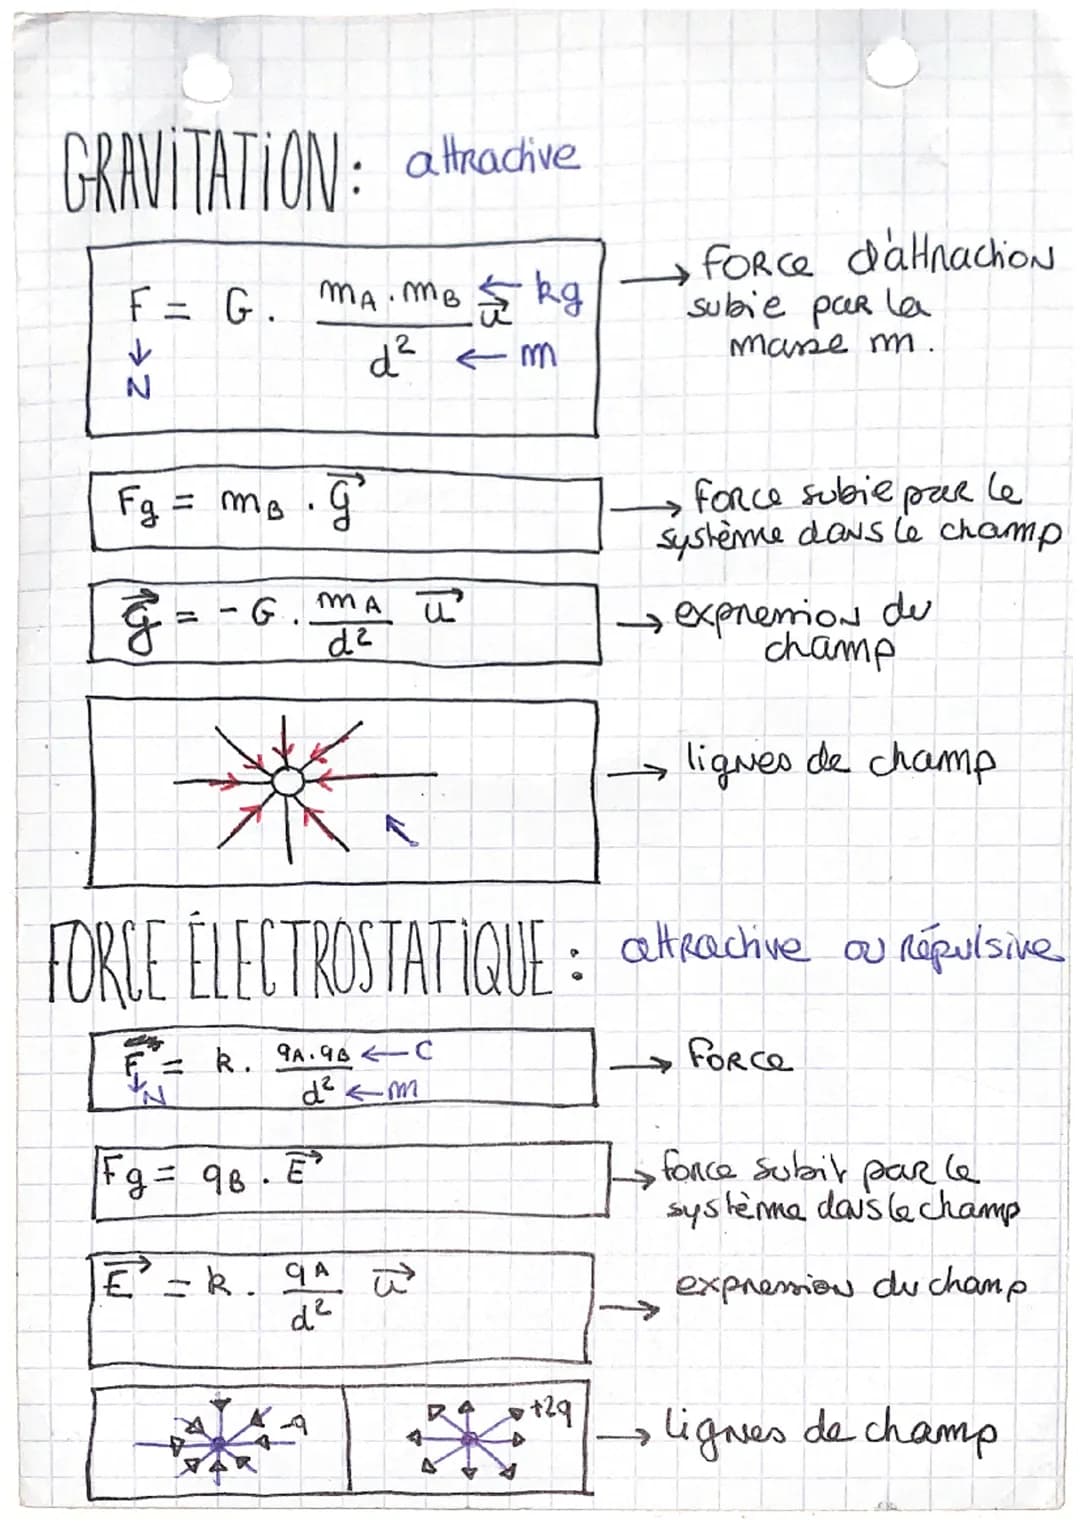 GRAVITATION : attractive
F = G . mA . mB / d² u⃗ ← kg
← m
↓
N
→ force d'attraction
subie par la
masse m.
Fg = mB . g⃗
→ force subie par le
système dans le champ
g⃗ = - G . mA / d² u⃗
→ expression du
champ
→ lignes de champ
FORCE ÉLECTROSTATIQUE : attractive ou répulsive
F = k . qA . qB / d² ← C
← m
↓ N
→ force
Fg = qB . E⃗
→ force subit par le
système dans le champ
E⃗ = k . qA / d² u⃗
→ expression du champ
-q
+2q
→ lignes de champ